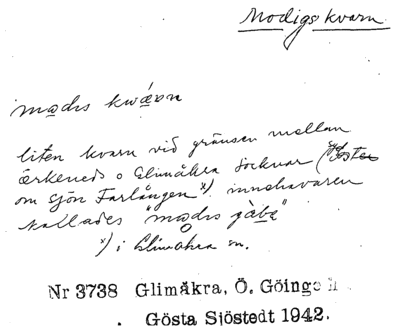 Modigs kvarn
mo̲dıs kwǽɒn
liten kvarn vid gränsen mellan
Örkeneds o Glimåkra socknar (Öster
om sjön Farlången ˣ⁾ innehavaren
kallades "mo̲dıs jàbə"
ˣ⁾ i Glimåkra sn.
Nr 3738 Glimåkra, Ö. Göinge h
. Gösta Sjöstedt 1942.